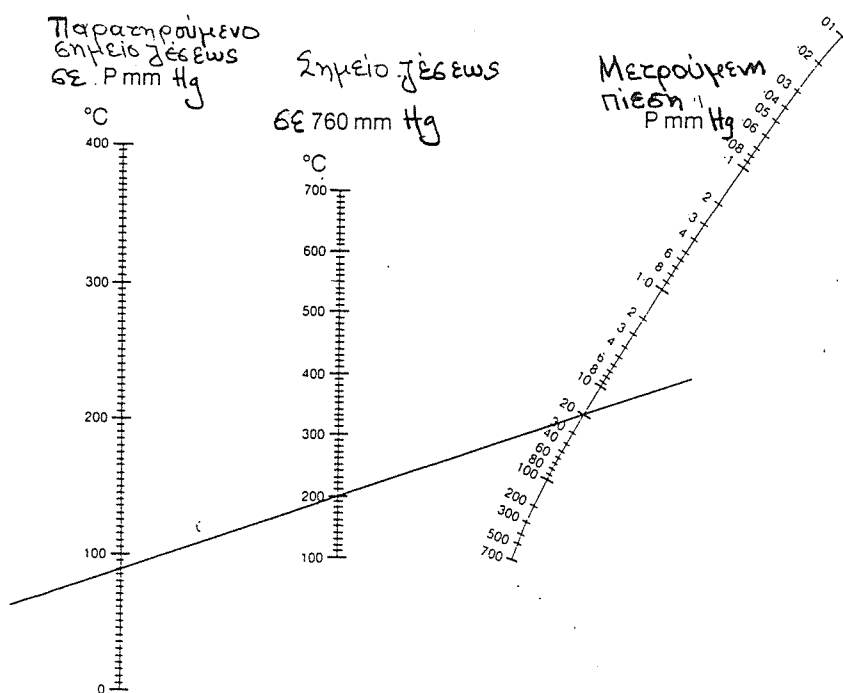 Παρατηρούμενο
σημείο ζέσεως
σε P mm Hg
°C
400
300
200
100
0
Σημείο ζέσεως
σε 760 mm Hg
°C
700
600
500
400
300
200
100
Μετρούμενη
πίεση
P mm Hg
01
·02
03
·04
05
·06
·08
·1
2
3
4
6
8
1·0
2
3
4
6
8
10
20
30
40
60
80
100
200
300
500
700